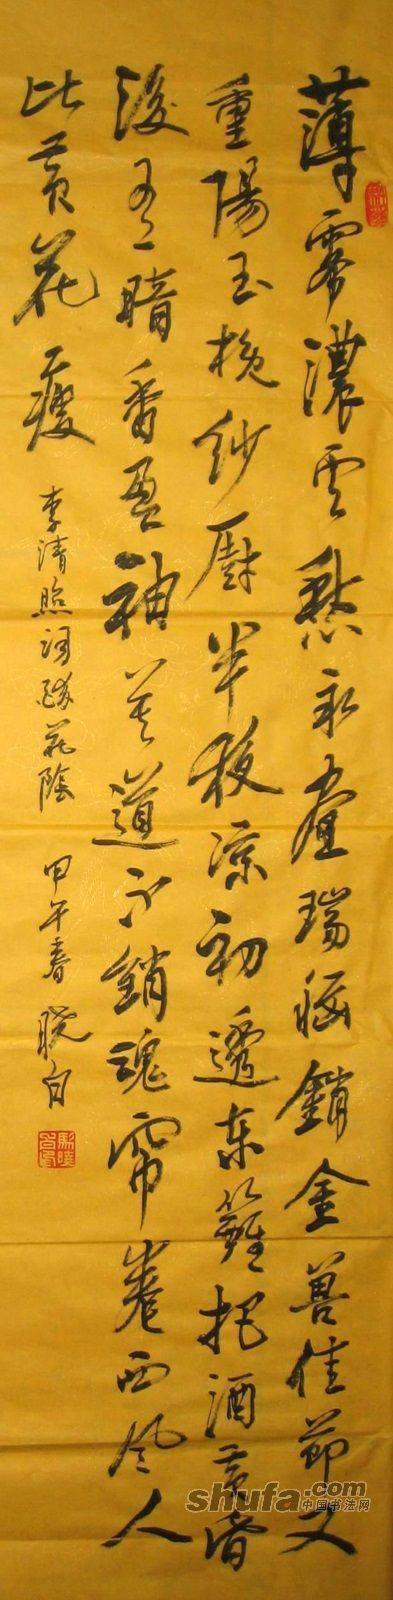 薄霧濃云愁永晝瑞腦銷金兽佳節又
重陽玉枕紗厨半夜涼初透東籬把酒黄昏
後有暗香盈袖莫道不銷魂帘卷西风人
比黄花瘦
李清照词醉花陰 甲午春 晓白
shufa.com
中国书法网